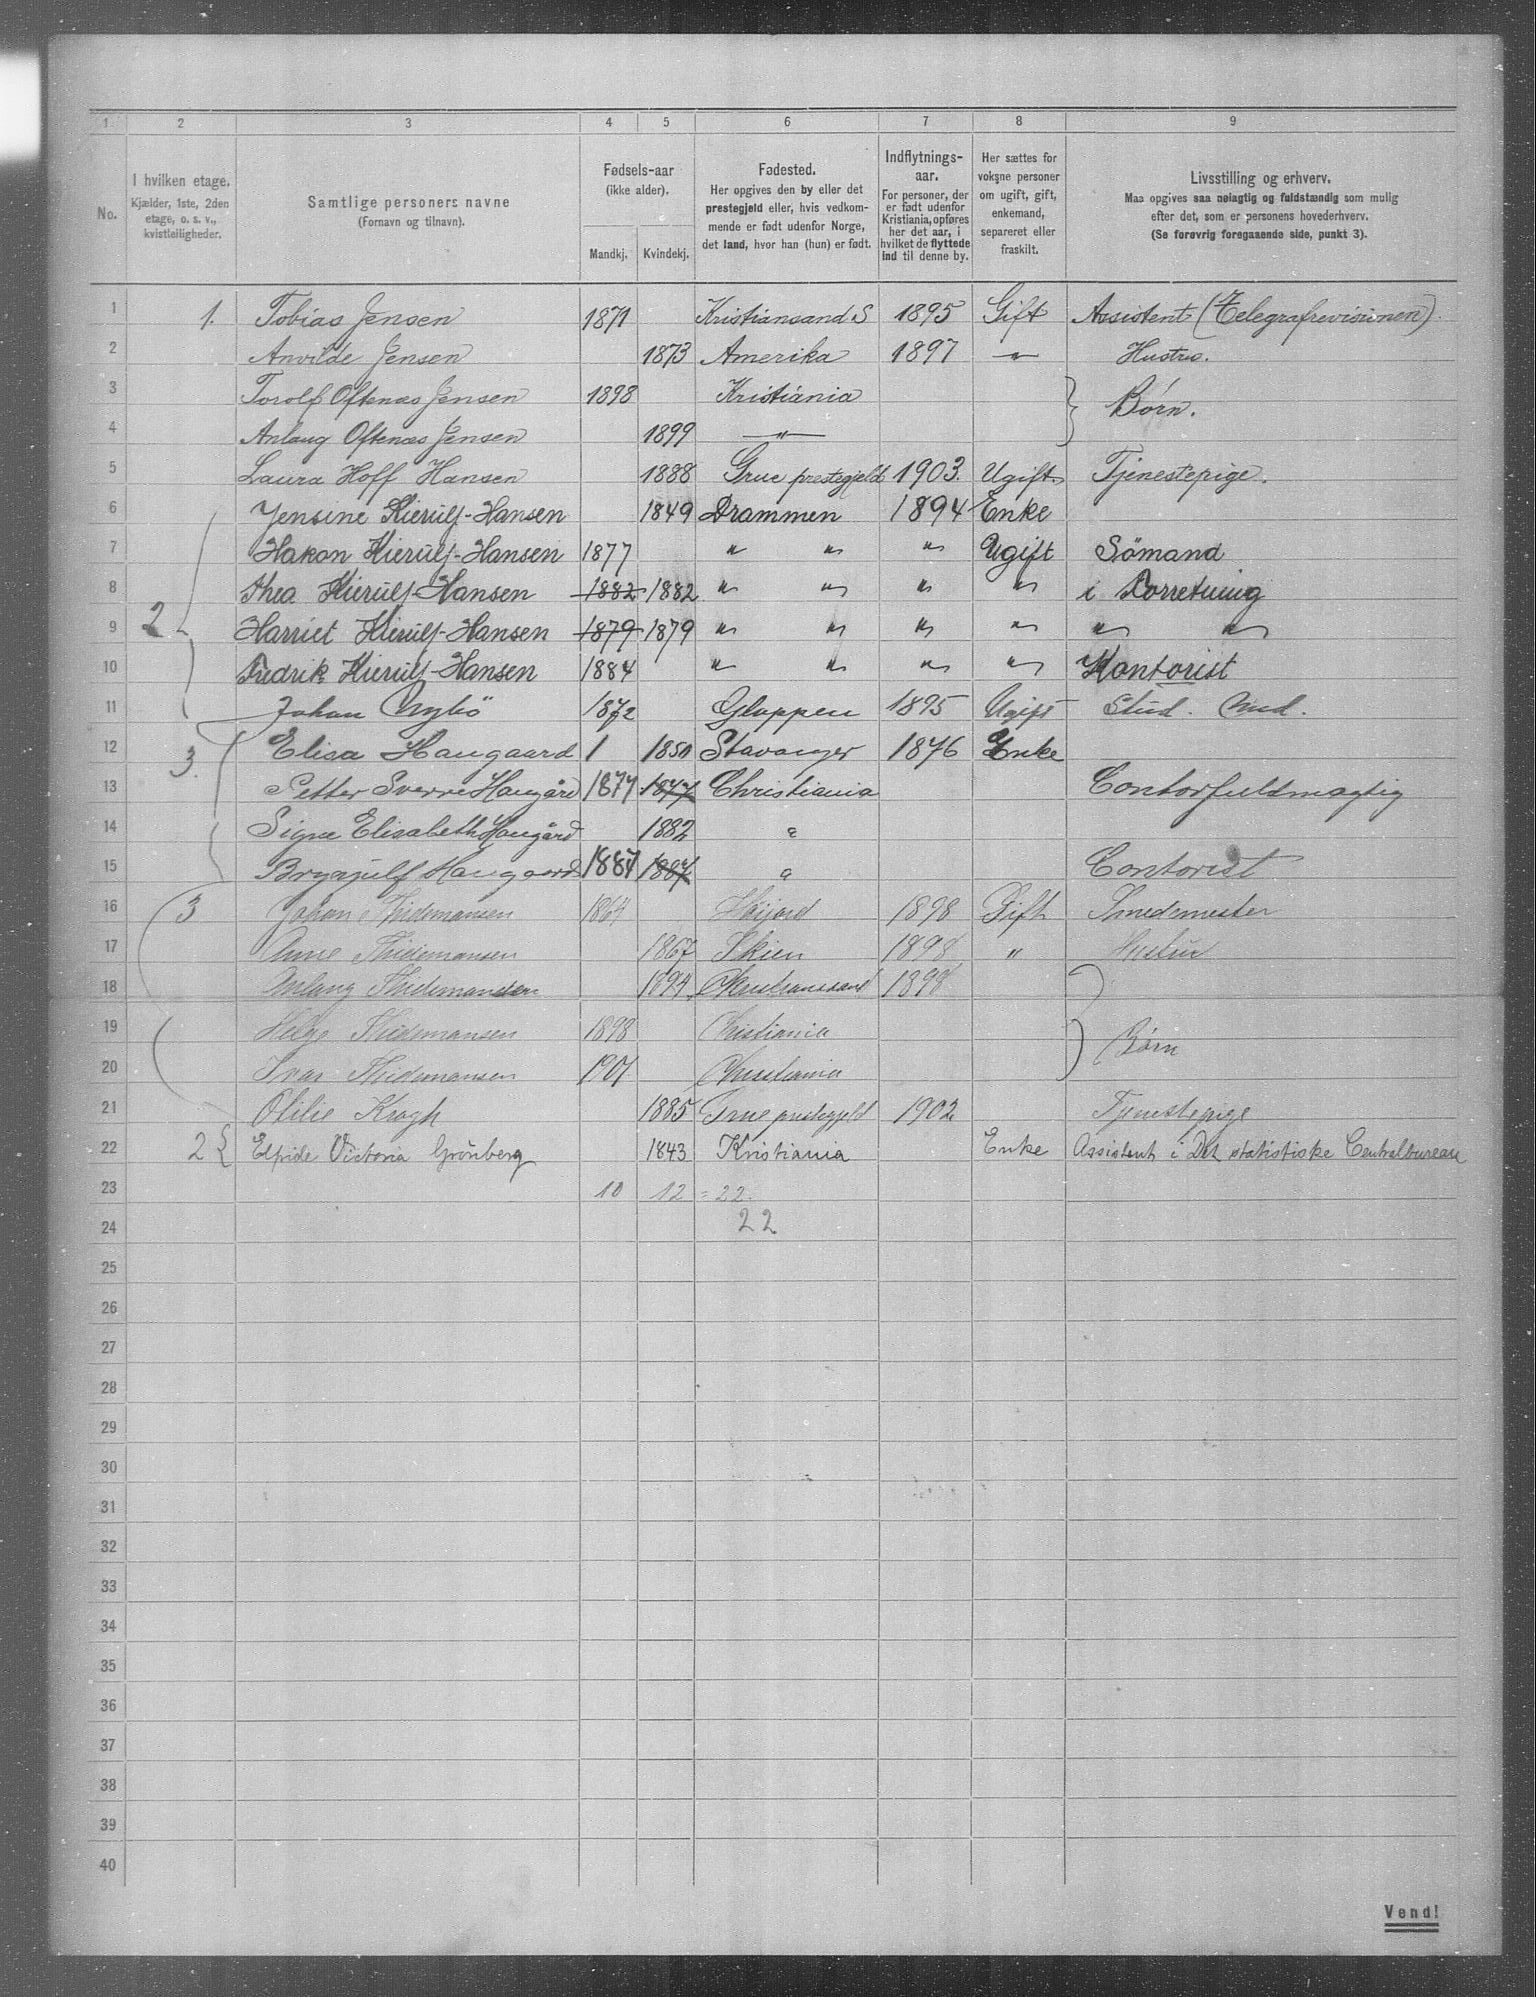 1 2 3 4 5 6 7 8 9
No.
I hvilken etage.
Kjælder, 1ste, 2den
etage, o. s. v.,
kvistleiligheder.
Samtlige personers navne
(Fornavn og tilnavn).
Fødsels-aar
(ikke alder).
Mandkj. Kvindekj.
Fødested.
Her opgives den by eller det
prestegjeld eller, hvis vedkom-
mende er født udenfor Norge,
det land, hvor han (hun) er født.
Indflytnings-
aar.
For personer, der
er født udenfor
Kristiania, opføres
her det aar, i
hvilket de flyttede
ind til denne by.
Her sættes for
voksne personer
om ugift, gift,
enkemand,
separeret eller
fraskilt.
Livsstilling og erhverv.
Maa opgives saa nøiagtig og fuldstændig som mulig
efter det, som er personens hovederhverv.
(Se forøvrig foregaaende side, punkt 3).
1 1. Tobias Jensen 1871 Kristiansand S 1895 Gift Assistent (Telegrafrevisionen).
2 Anvilde Jensen 1873 Amerika 1897 〃 Hustru.
3 Torolf Oftenæs Jensen 1898 Kristiania } Børn.
4 Anlaug Oftenæs Jensen 1899 〃
5 Laura Hoff Hansen 1888 Grue prestegjeld 1903. Ugift. Tjenestepige.
6 Jensine Kierulf-Hansen 1849 Drammen 1894 Enke
7 Hakon Kierulf-Hansen 1877 〃 〃 〃 Ugift Sömand
8 Thea Kierulf-Hansen 1882 1882 〃 〃 〃 〃 i Forretning
9 2 Harriet Kierulf-Hansen 1879 1879 〃 〃 〃 〃 〃 〃
10 Fredrik Kierulf-Hansen 1884 〃 〃 〃 〃 Kontorist
11 Johan 1872 Gloppen 1895 Ugift Stud. Med.
12 3. Elisa Haugaard 1 1850 Stavanger 1876 Enke
13 Petter Sverre Haugård 1877 1877 Christiania Contorfuldmægtig
14 Signe Elisabeth Haugård 1882 〃
15 Brynjulf Haugaard 1887 1887 〃 Contorist
16 3 Johan Thidemansen 1864 1898 Gift Smedmester
17 Anne Thidemansen 1867 Skien 1898 〃 Hustru
18 Anlaug Thidemansen 1894 Christianssand 1898
19 Helge Thidemansen 1898 Christiania } Børn
20 Ivar Thidemansen 1901 Christiania
21 Otilie Krogh 1885 Grue prestegjeld 1902 Tjenestepige
22 2 { Elfride Victoria Grönberg 1843 Kristiania Enke Assistent i Det statistiske Centralbureau
23 10 12 = 22.
24 22
25
26
27
28
29
30
31
32
33
34
35
36
37
38
39
40
Vend!